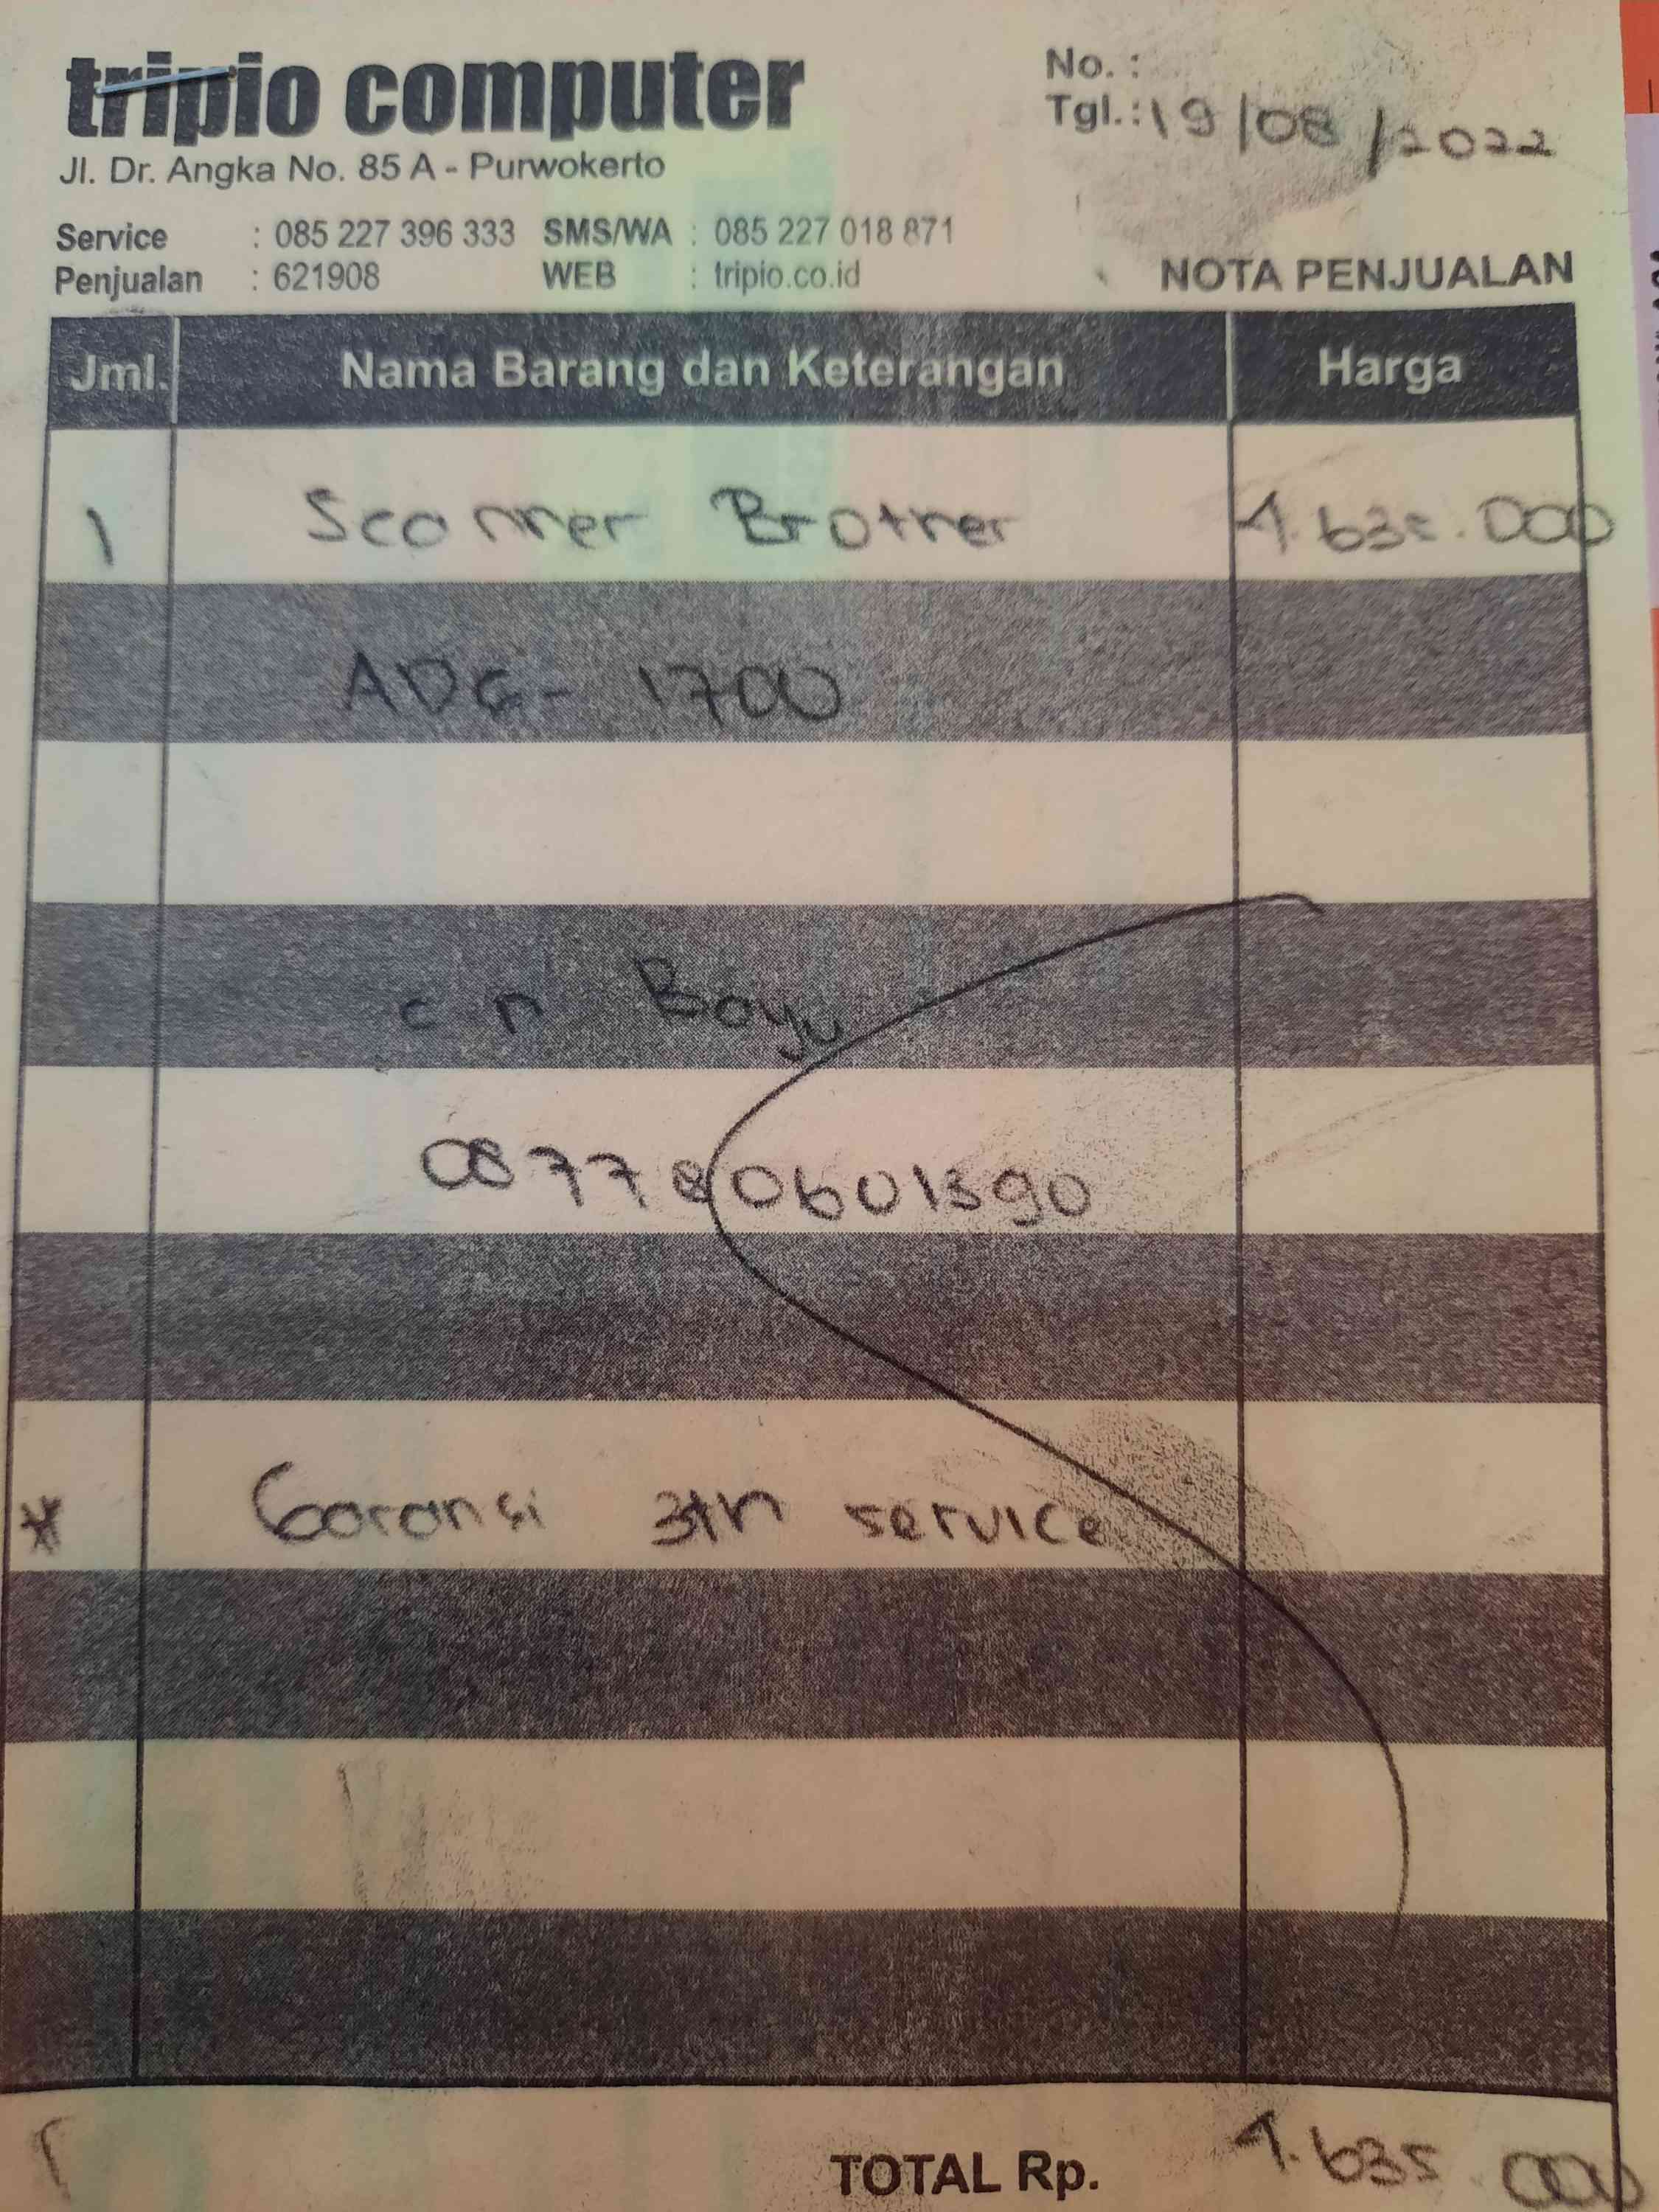 tripio computer
Jl. Dr. Angka No. 85 A - Purwokerto
No. :
Tgl.: 19/08/2022
Service : 085 227 396 333 SMS/WA : 085 227 018 871
Penjualan : 621908 WEB : tripio.co.id
NOTA PENJUALAN
Jml. Nama Barang dan Keterangan Harga
1 Scanner Brother 4.635.000
ADS- 1700
Bayu
* Garansi 3th service
TOTAL Rp. 4.635.000